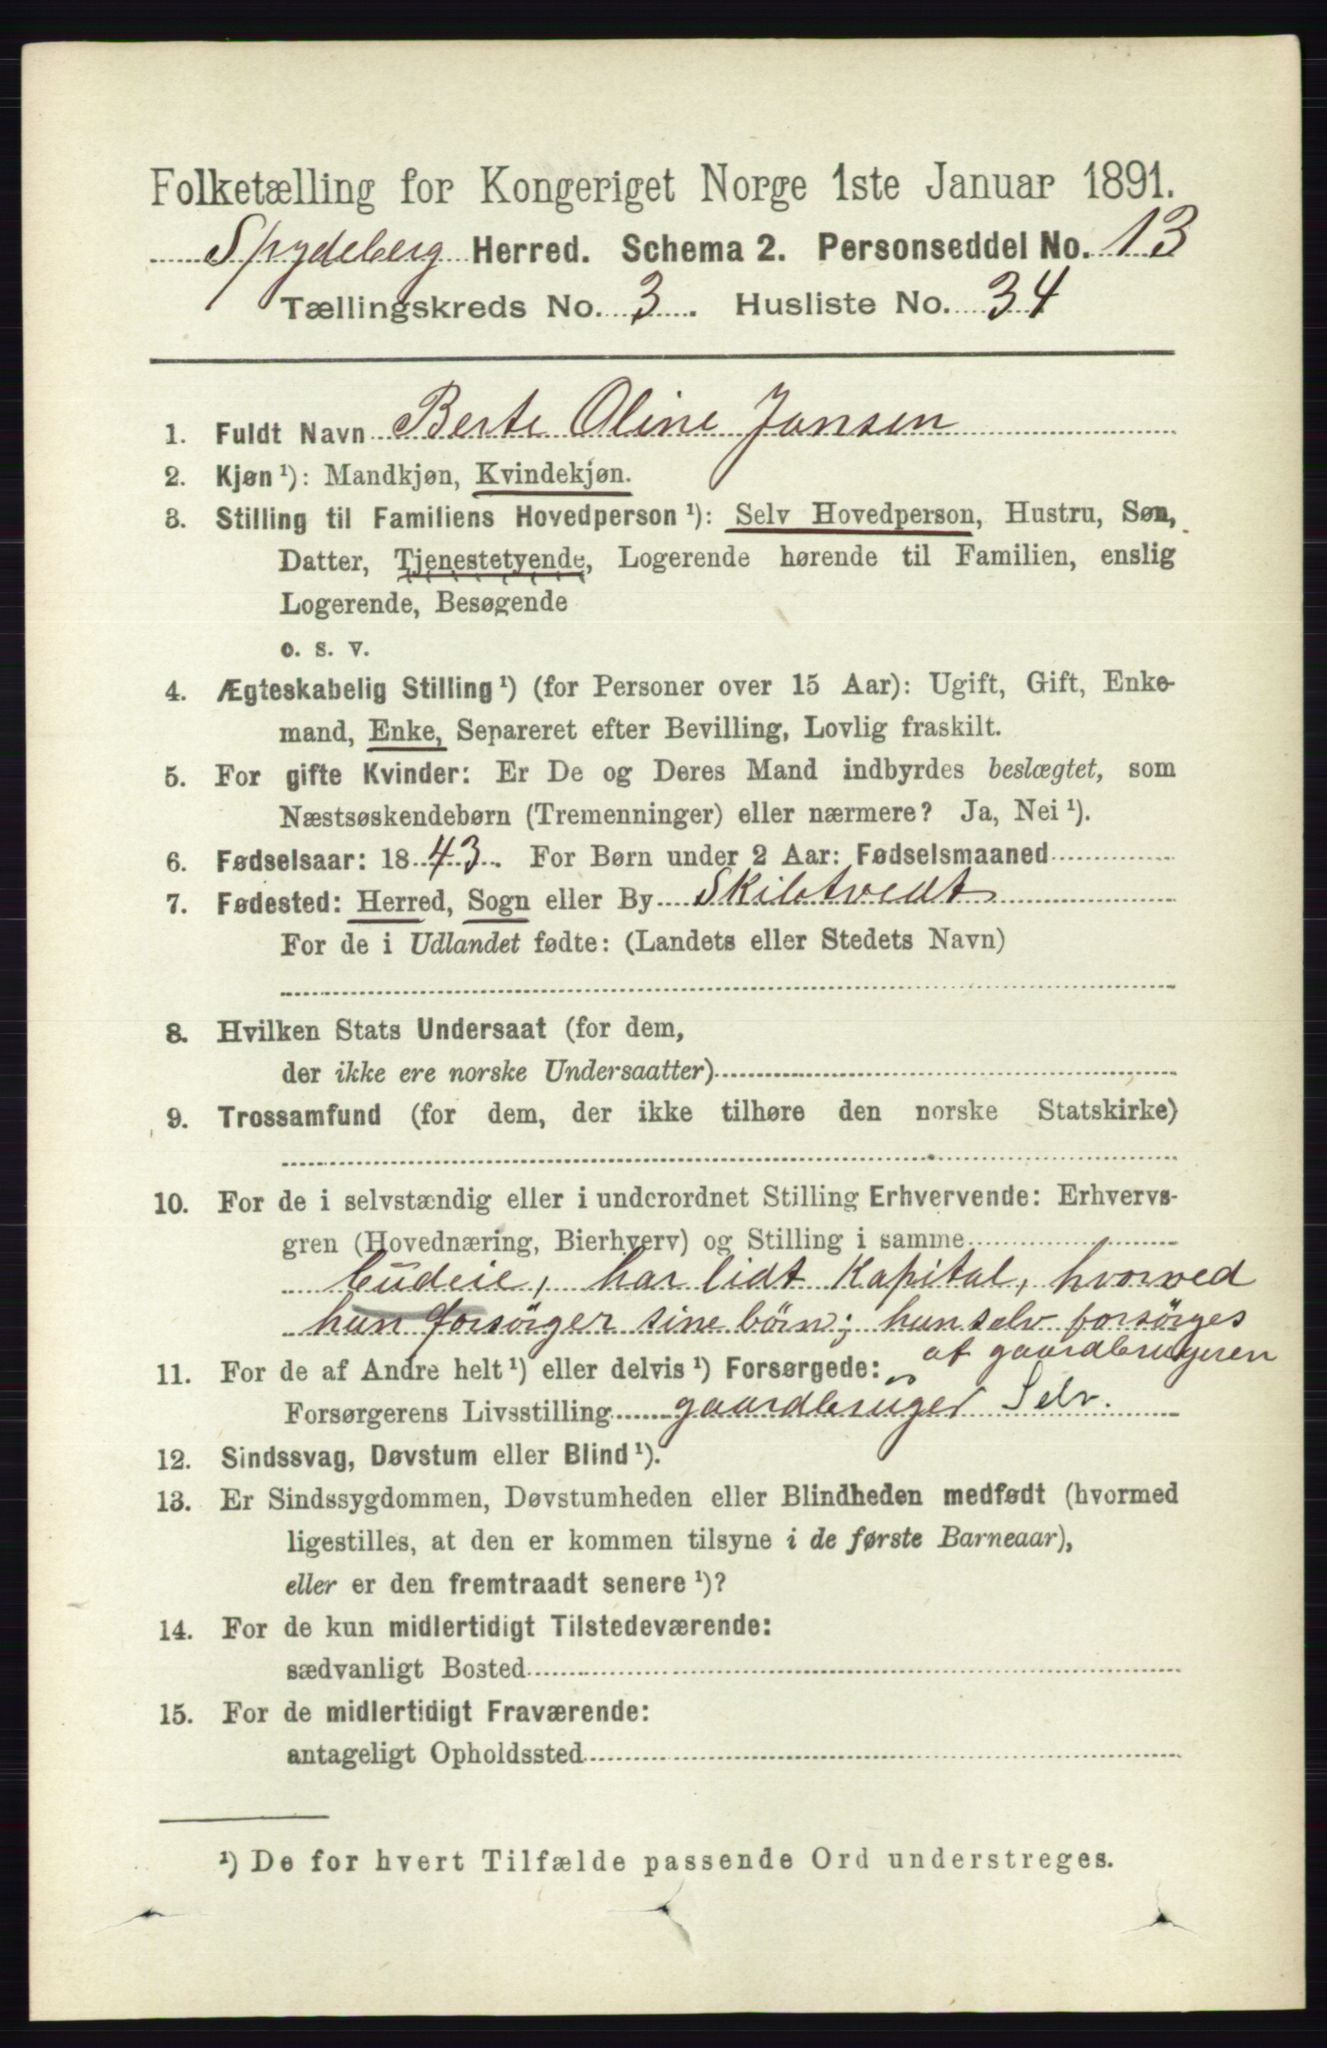 Folketælling for Kongeriget Norge 1ste Januar 1891.
Spydeberg Herred. Schema 2. Personseddel No. 13
Tællingskreds No. 3. Husliste No. 34
1. Fuldt Navn Berte Oline Jansen
2. Kjøn ¹): Mandkjøn, Kvindekjøn.
3. Stilling til Familiens Hovedperson ¹): Selv Hovedperson, Hustru, Søn,
Datter, Tjenestetyende, Logerende hørende til Familien, enslig
Logerende, Besøgende
o. s. v.
4. Ægteskabelig Stilling ¹) (for Personer over 15 Aar): Ugift, Gift, Enke-
mand, Enke, Separeret efter Bevilling, Lovlig fraskilt.
5. For gifte Kvinder: Er De og Deres Mand indbyrdes beslægtet, som
Næstsøskendebørn (Tremenninger) eller nærmere? Ja, Nei ¹).
6. Fødselsaar: 1843. For Børn under 2 Aar: Fødselsmaaned
7. Fødested: Herred, Sogn eller By Skibtvedt
For de i Udlandet fødte: (Landets eller Stedets Navn)
8. Hvilken Stats Undersaat (for dem,
der ikke ere norske Undersaatter)
9. Trossamfund (for dem, der ikke tilhøre den norske Statskirke)
10. For de i selvstændig eller i underordnet Stilling Erhvervende: Erhvervs-
gren (Hovednæring, Bierhverv) og Stilling i samme
budeie, har lidt Kapital, hvorved
hun forsörger sine börn; hun selv forsörges
af gaardbrugeren
11. For de af Andre helt ¹) eller delvis ¹) Forsørgede:
Forsørgerens Livsstilling gaardbruger Selv.
12. Sindssvag, Døvstum eller Blind ¹).
13. Er Sindssygdommen, Døvstumheden eller Blindheden medfødt (hvormed
ligestilles, at den er kommen tilsyne i de første Barneaar),
eller er den fremtraadt senere ¹)?
14. For de kun midlertidigt Tilstedeværende:
sædvanligt Bosted
15. For de midlertidigt Fraværende:
antageligt Opholdssted
¹) De for hvert Tilfælde passende Ord understreges.